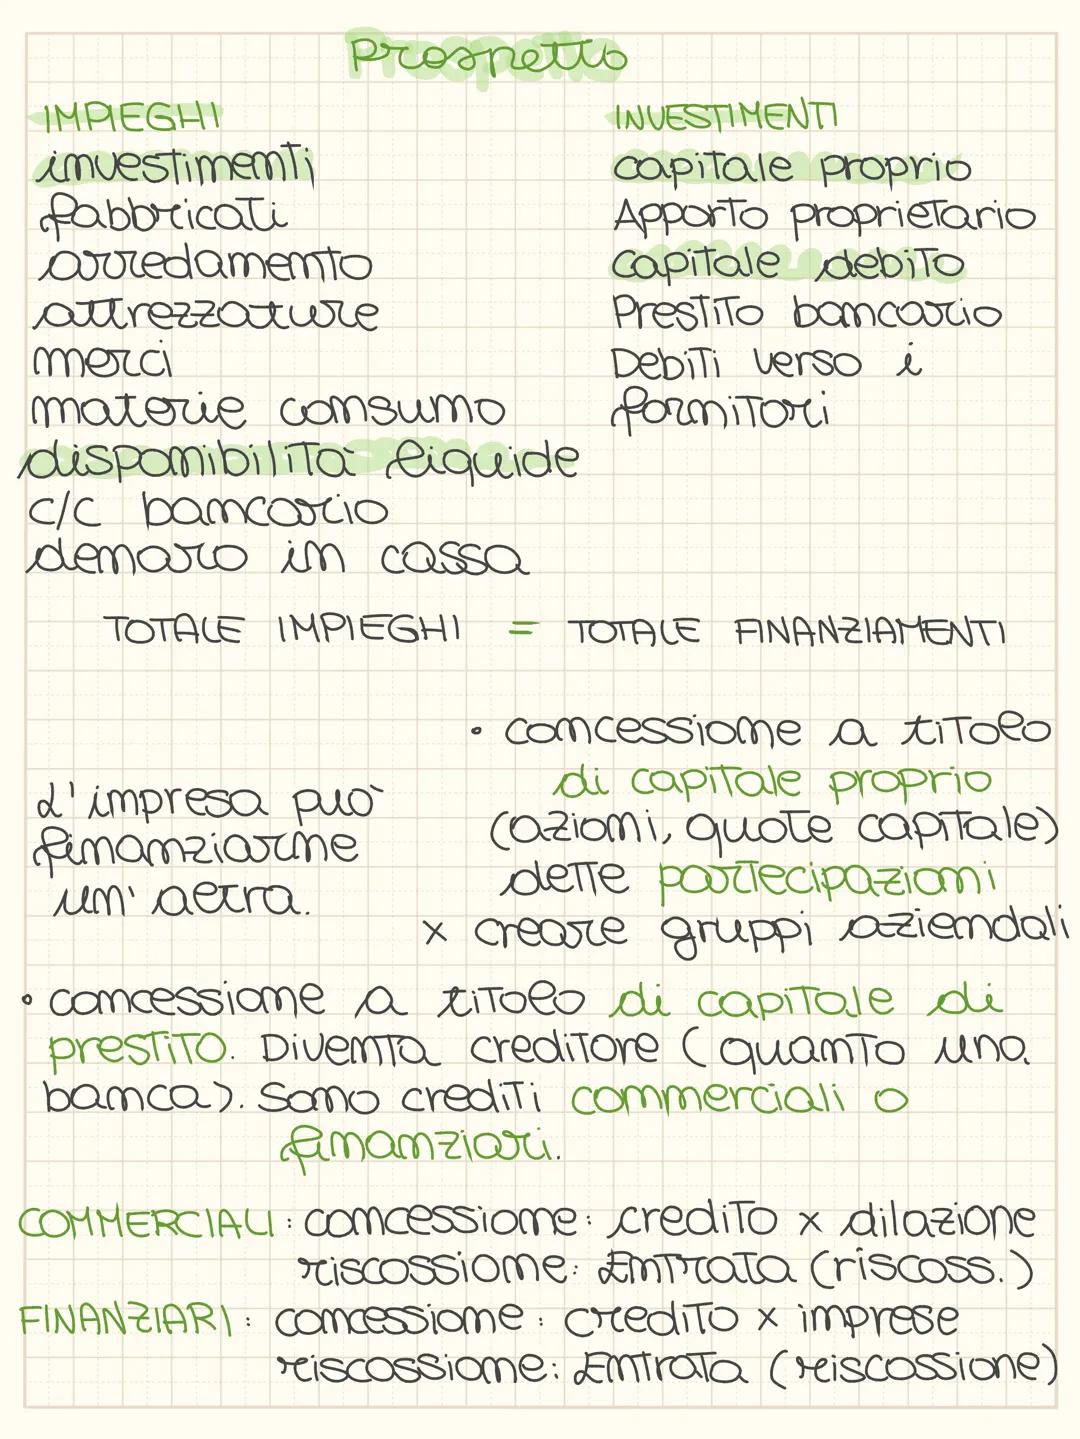 Prospetto
IMPIEGHI
investimenti
fabbricati
arredamento
attrezzature
merci
materie consumo
disponibilità liquide
c/c bancario
denaro in cassa
INVESTIMENTI
capitale proprio
Apporto proprietario
capitale debito
Prestito bancario
Debiti verso i
fornitori
TOTALE IMPIEGHI = TOTALE FINANZIAMENTI
L'impresa può
finanziarne
un'altra.
• concessione a titolo
di capitale proprio
(azioni, quote capitale)
dette partecipazioni
x creare gruppi aziendali
• concessione a titolo di capitale di
prestito. Diventa creditore (quanto una
banca). Sono crediti commerciali o
finanziari.
COMMERCIALI: concessione: credito x dilazione
riscossione: Entrata (riscoss.)
FINANZIARI: concessione: credito x imprese
riscossione: Entrata (riscossione)